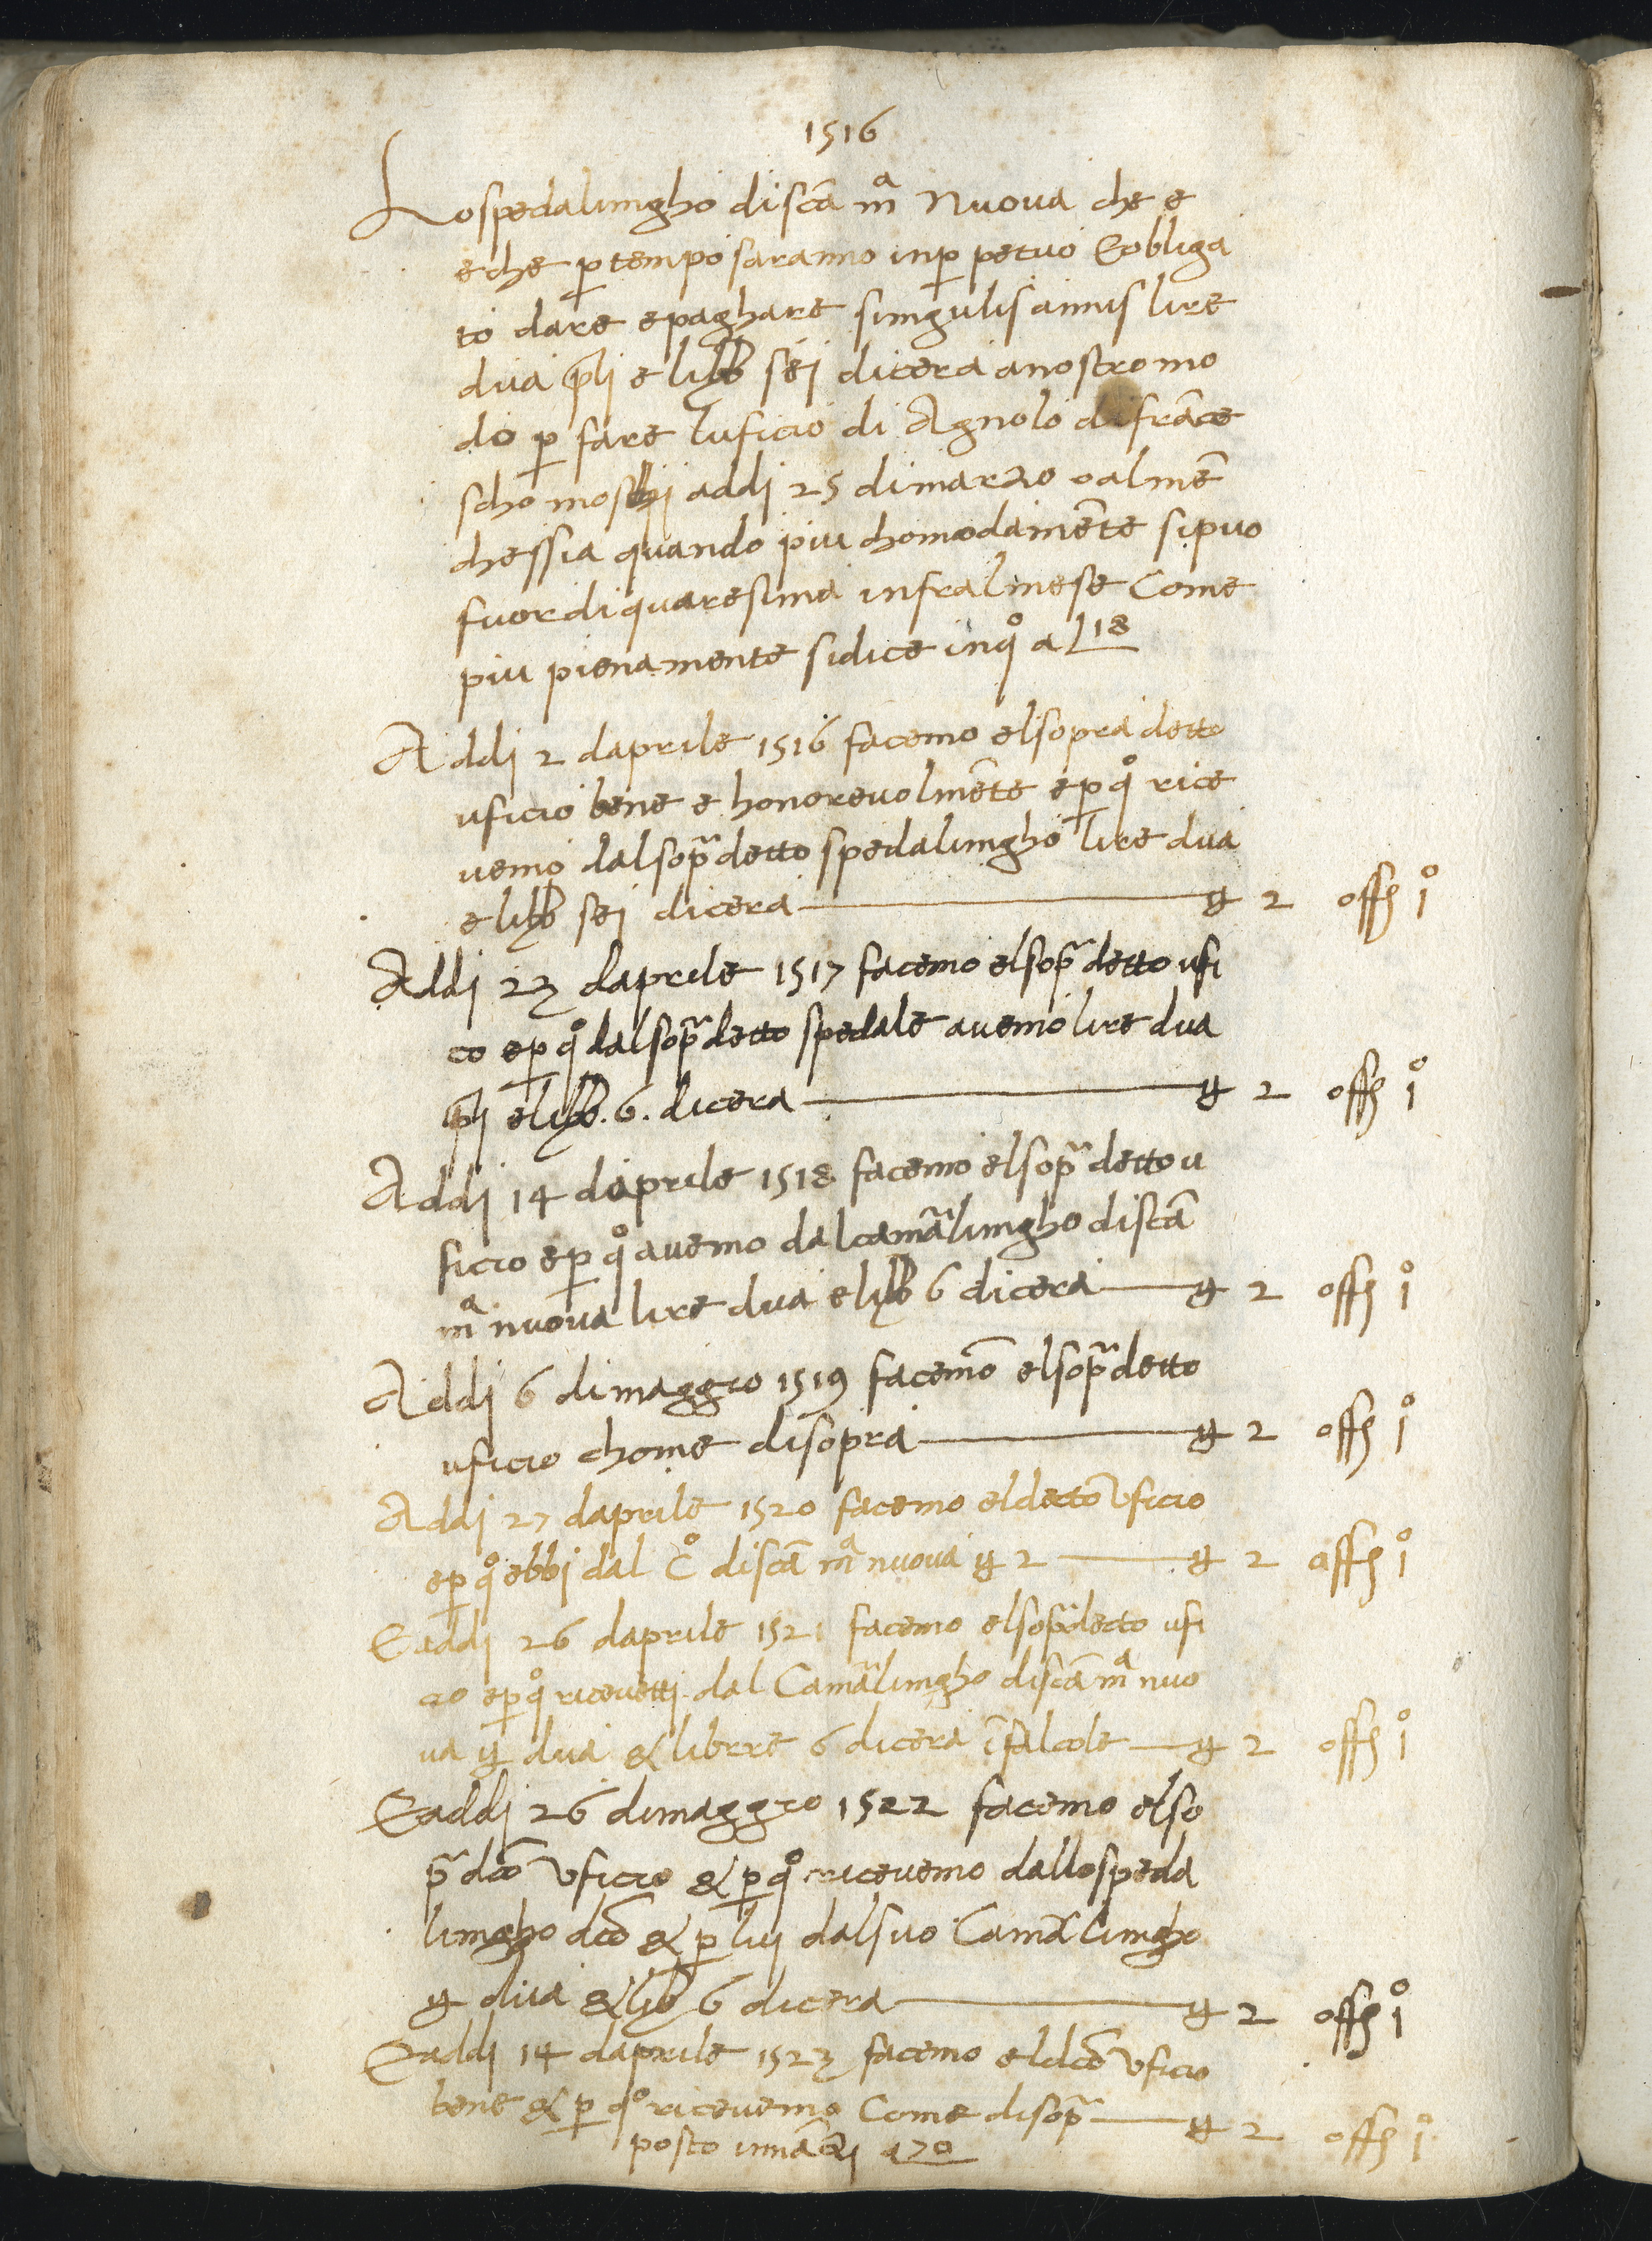 1516
Lo spedalingho di scã mª Nuova che e
e che p tempo saranno inp petuo Eobliga
to dare e paghare singulis annis lire
dua plj e libb sej di cera a nostro mo
do p fare luficio di Agnolo di frãce
scho moschj addj 25 di marzo o al mẽ
chessia quando piu chomodamẽte si puo
fuor di quaresima infral mese Come
piu pienamente si dice in qº a l 18
Addj 2 daprile 1516 facemo el sopra detto
uficio bene e honorevolmẽte e p qº rice
vemo dal sopª detto spedalingho lire dua
e libb sej di cera — ll 2 offº jº
Addj 23 daprile 1517 facemo el sopª detto ufi
co e p qº dal sopª detto spedale avemo lire dua
plj e libb. 6. di cera — ll 2 offº jº
Addj 14 daprile 1518 facemo el sopª detto u
ficio e p qº avemo dal camªlingho di scã
mª nuova lire dua e libb 6 di cera — ll 2 offº jº
Addj 6 di maggio 1519 facemõ el sopª detto
uficio chome di sopra — ll 2 offº jº
Addj 27 daprile 1520 facemo el decto Vficio
e p qº ebbj dal cº di scã mª nuova ll 2 — ll 2 offº jº
E addj 26 daprile 1521 facemo el sopª decto ufi
cio e p qº ricevettj dal Camªlingho di scã mª nuo
va ll dua & librre 6 di cera ĩ falcole — ll 2 offº jº
E addj 26 di maggio 1522 facemo el so
pª dcõ Vficio & p qº ricevemo dallo speda
lingho dcõ & p luj dal suo Camªlingho
ll dua & libb 6 di cera — ll 2 offº jº
E addj 14 daprile 1523 facemo el dcõ Vficio
bene & p qº ricevemo Come di sopª — ll 2 offº jº
posto innãzj a 70